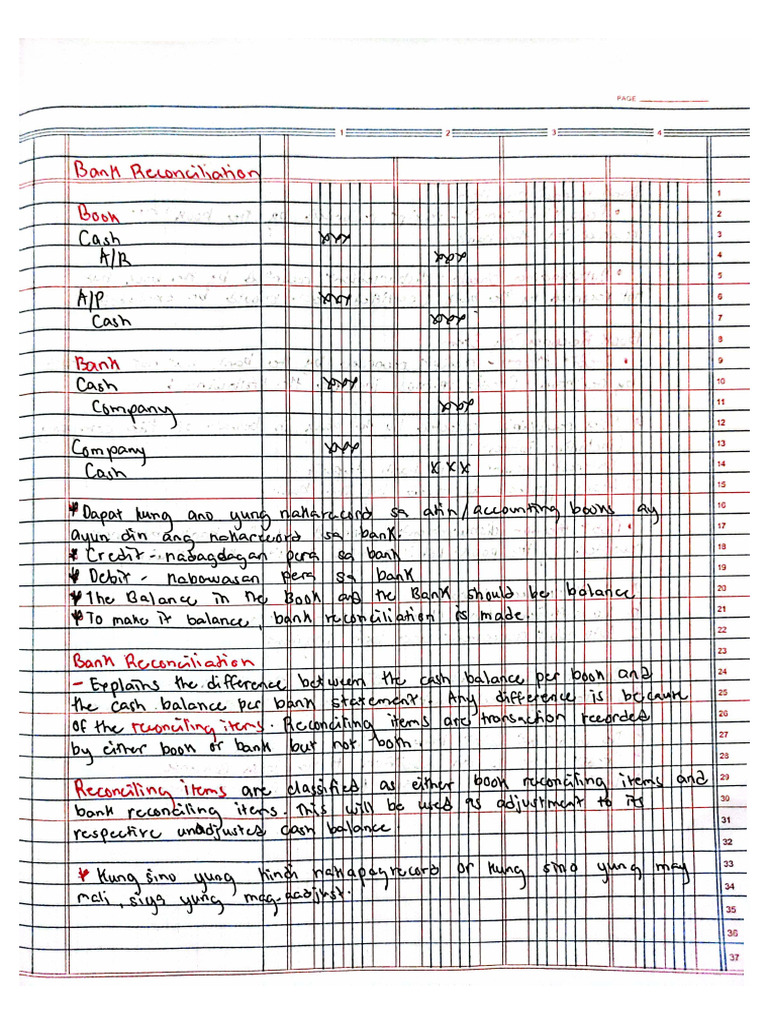 PAGE
1 2 3 4
Bank Reconciliation
1
Book 2
Cash xxx 3
A/R xxx 4
5
A/P xxx 6
Cash xxx 7
8
Bank 9
Cash xxx 10
Company xxx 11
12
Company xxx 13
Cash xxx 14
15
* Dapat kung ano yung naharecord sa atin/accounting books ay 16
ayun din ang naharecord sa bank. 17
* Credit - nadagdagan pera sa bank 18
* Debit - nabawasan pera sa bank 19
* The Balance in the Book and the Bank should be balance 20
* To make it balance, bank reconciliation is made. 21
22
Bank Reconciliation 23
- Explains the difference between the cash balance per book and 24
the cash balance per bank statement. Any difference is because 25
of the reconciling items. Reconciling items are transaction recorded 26
by either book or bank but not both. 27
28
Reconciling items are classified as either book reconciling items and 29
bank reconciling items. This will be used as adjustment to its 30
respective unadjusted cash balance. 31
32
* Kung sino yung hindi nakapagrecord or kung sino yung may 33
mali, siya yung mag-aadjust. 34
35
36
37